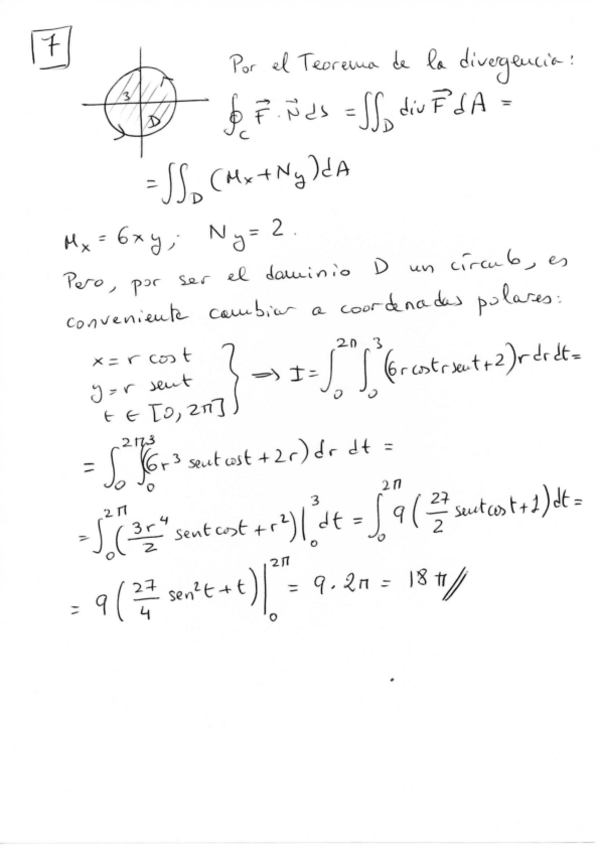 7
Por el Teorema de la divergencia:
3
D
∮_C F⃗·N⃗ ds = ∬_D div F⃗ dA =
= ∬_D (Mx + Ny) dA
Mx = 6xy; Ny = 2.
Pero, por ser el dominio D un círculo, es
conveniente cambiar a coordenadas polares:
x = r cos t
y = r sen t
t ∈ [0, 2π]
⇒ I = ∫_0^{2π} ∫_0^3 (6r cost r sent + 2) r dr dt =
= ∫_0^{2π} ∫_0^3 (6r³ sent cost + 2r) dr dt =
= ∫_0^{2π} (3r⁴/2 sent cost + r²) |_0^3 dt = ∫_0^{2π} 9 (27/2 sent cost + 1) dt =
= 9 (27/4 sen²t + t) |_0^{2π} = 9 · 2π = 18π //